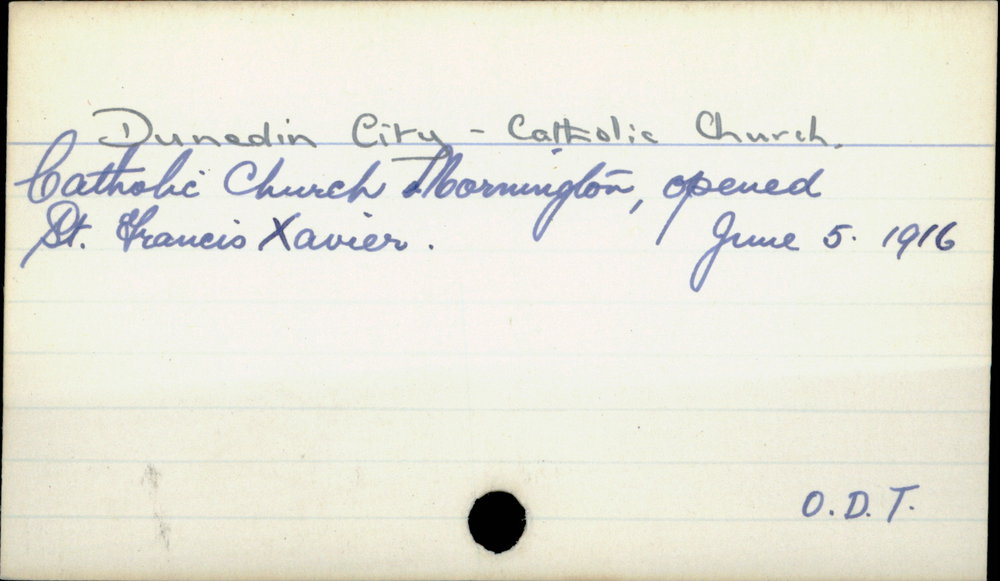 Dunedin City - Catholic Church.
Catholic Church Mornington, opened
St. Francis Xavier. June 5. 1916
O.D.T.